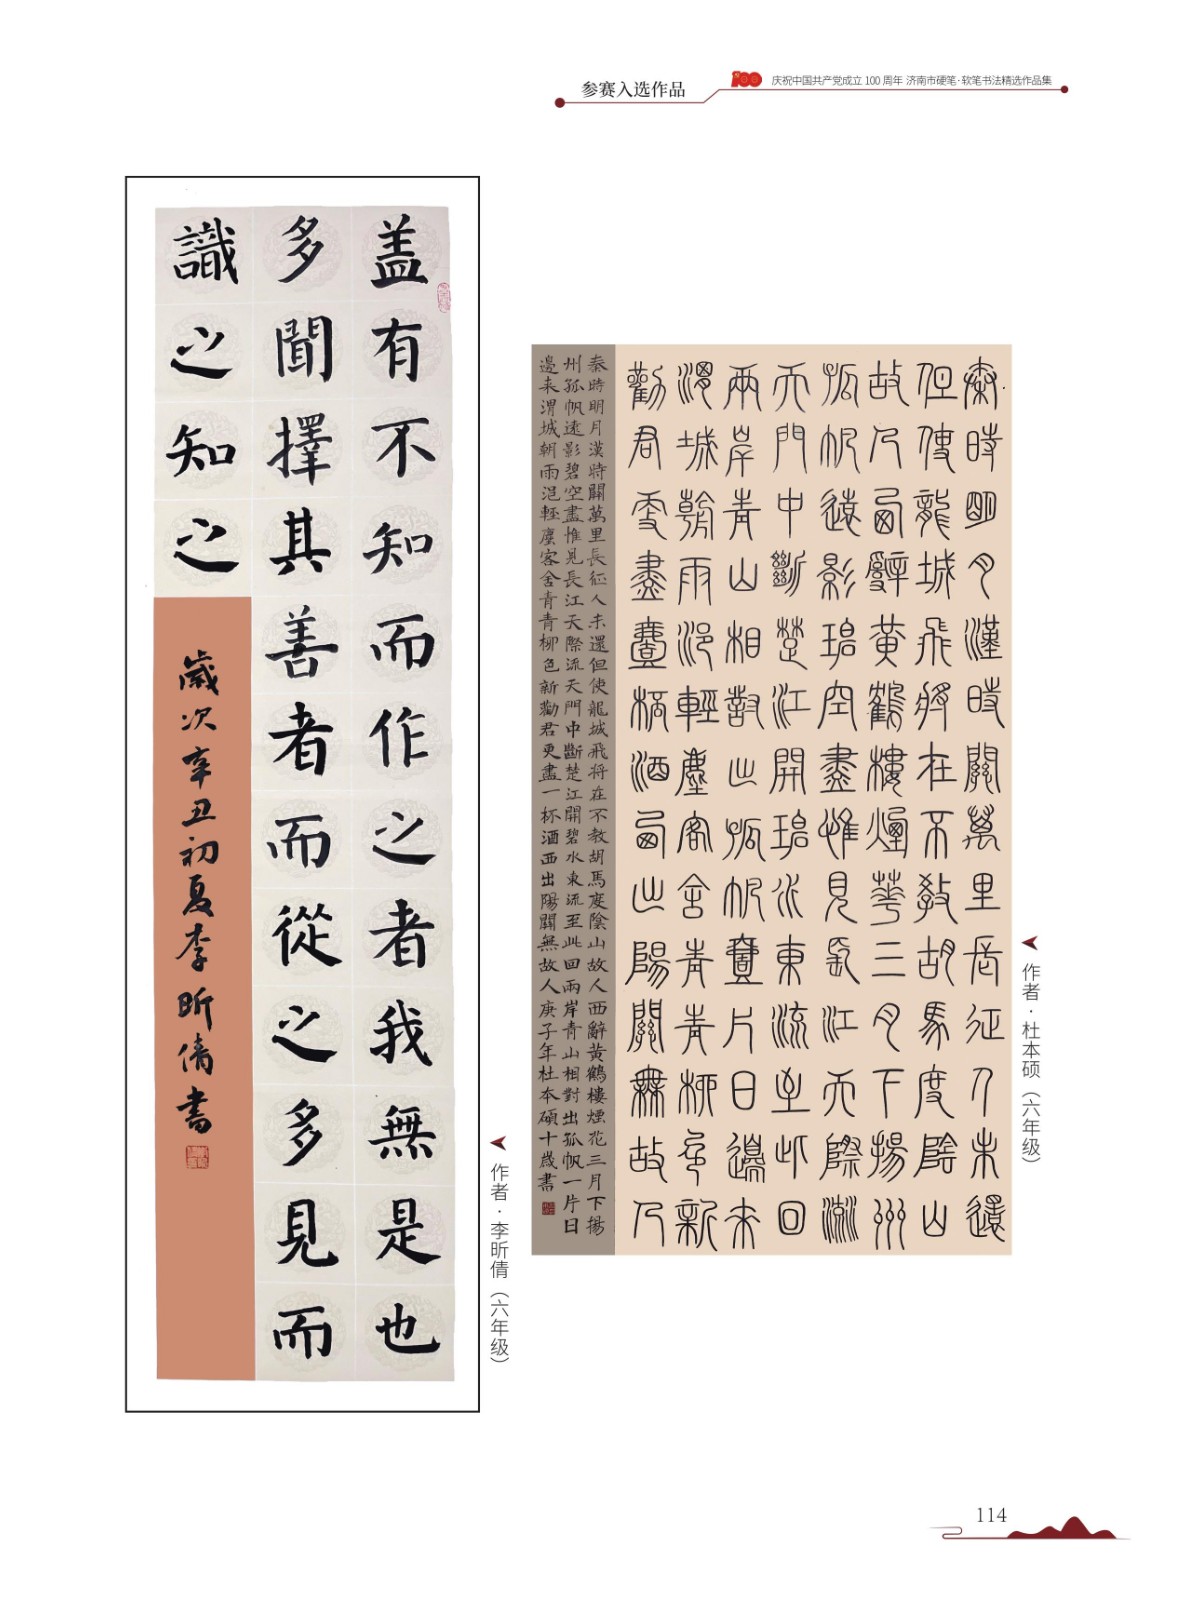 参赛入选作品
100 庆祝中国共产党成立 100 周年 济南市硬笔·软笔书法精选作品集
盖有不知而作之者我無是也
多聞擇其善者而從之多見而
識之知之
歲次辛丑初夏李昕倩書
作者·李昕倩（六年级）
秦時明月漢時關萬里長征人未還
但使龍城飛將在不教胡馬度陰山
故人西辭黃鶴樓煙華三月下揚州
孤帆遠影碧空盡惟見長江天際流
天門中斷楚江開碧水東流至此回
兩岸青山相對出孤帆壹片日邊來
渭城朝雨浥輕塵客舍青青柳色新
勸君更盡壹杯酒西出陽關無故人
秦時明月漢時關萬里長征人未還但使龍城飛将在不教胡馬度陰山故人西辭黃鶴樓煙花三月下揚
州孤帆遠影碧空盡惟見長江天際流天門中斷楚江開碧水東流至此回兩岸青山相對出孤帆一片日
邊来渭城朝雨浥輕塵客舍青青柳色新勸君更盡一杯酒西出陽關無故人庚子年杜本碩十歲書
作者·杜本硕（六年级）
114